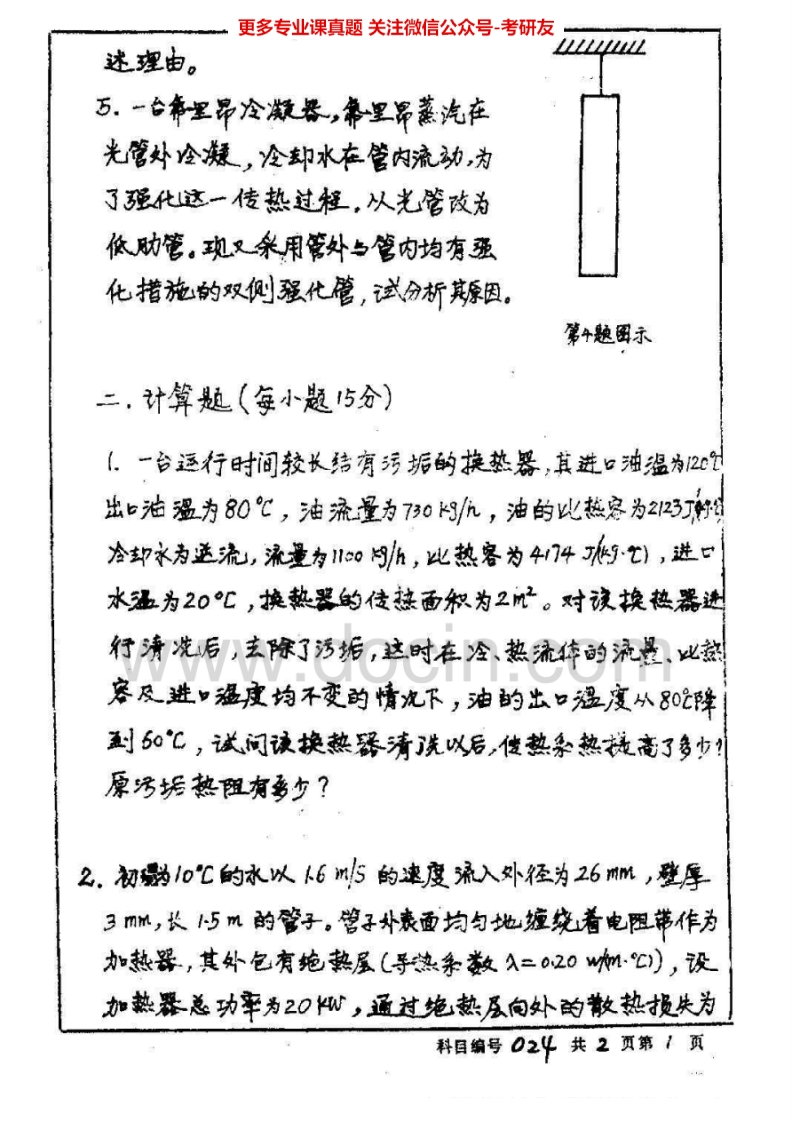 更多专业课真题 关注微信公众号-考研友
述理由。
5. 一台氟里昂冷凝器，氟里昂蒸汽在
光管外冷凝，冷却水在管内流动，为
了强化这一传热过程，从光管改为
低肋管。现又采用管外与管内均有强
化措施的双侧强化管，试分析其原因。
第4题图示
二. 计算题（每小题15分）
1. 一台运行时间较长结有污垢的换热器，其进口油温为120℃
出口油温为80℃，油流量为730 kg/h，油的比热容为2123 J/(kg·℃)
冷却水为逆流，流量为1100 kg/h，比热容为4174 J/(kg·℃)，进口
水温为20℃，换热器的传热面积为2m²。对该换热器进
行清洗后，去除了污垢，这时在冷、热流体的流量、比热
容及进口温度均不变的情况下，油的出口温度从80℃降
到60℃，试问该换热器清洗以后，传热系热提高了多少？
原污垢热阻有多少？
www.docin.com
2. 初温为10℃的水以1.6 m/s的速度流入外径为26 mm，壁厚
3 mm，长1.5 m的管子。管子外表面均匀地缠绕着电阻带作为
加热器，其外包有绝热层（导热系数λ=0.20 w/(m·℃)），设
加热器总功率为20 KW，通过绝热层向外的散热损失为
科目编号 024 共 2 页第 1 页